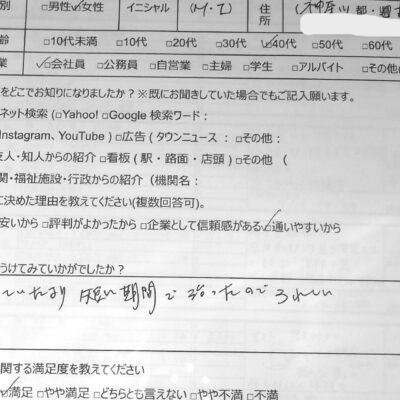 別 □男性 ☑女性 イニシャル (M・I) 住所 (神奈川 都・
齢 □10代未満 □10代 □20代 □30代 ☑40代 □50代 □60代
業 ☑会社員 □公務員 □自営業 □主婦 □学生 □アルバイト □その他(
をどこでお知りになりましたか?※既にお聞きしていた場合でもご記入願います。
ネット検索(□Yahoo! □Google 検索ワード:
Instagram、YouTube) □広告(タウンニュース: □その他:
友人・知人からの紹介 □看板(駅・路面・店頭) □その他 (
関・福祉施設・行政からの紹介(機関名:
に決めた理由を教えてください(複数回答可)。
安いから □評判がよかったから □企業として信頼感がある ☑通いやすいから
うけてみていかがでしたか?
ていたより 短い期間で治ったので うれしい
関する満足度を教えてください
☑満足 □やや満足 □どちらとも言えない □やや不満 □不満